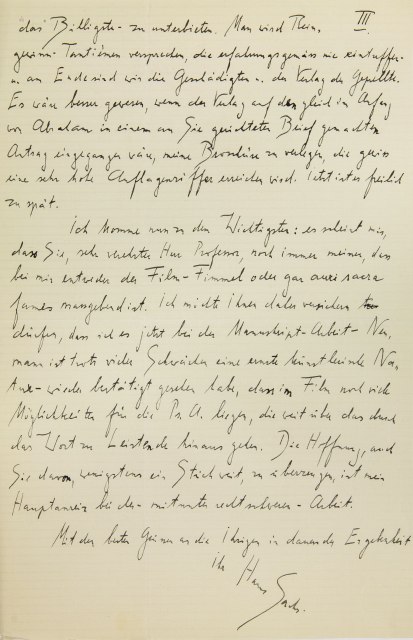 III
das Billigste - zu unterbieten. Man wird Ihnen
gewisse Tantièmen versprechen, die erfahrungsgemäss nie eintreffen
u. am Ende sind wir die Geschädigten u. der Verlag der Geprellte.
Es wäre besser gewesen, wenn der Verlag auf den gleich im Anfang
von Abraham in einem an Sie gerichteten Brief gemachten
Antrag eingegangen wäre, meine Broschüre zu verlegen, die gewiss
eine sehr hohe Auflagenziffer erreichen wird. Jetzt ist es freilich
zu spät.
Ich komme nun zu dem Wichtigsten: es scheint mir,
dass Sie, sehr verehrter Herr Professor, noch immer meinen, dass
bei mir entweder der Film-Fimmel oder gar auri sacra
fames massgebend ist. Ich möchte Ihnen daher versichern
dürfen, dass ich es jetzt bei der Manuskript-Arbeit -
man ist trotz vieler Schwächen eine ernste künstlerische
wieder bestätigt gesehen habe, dass im Film noch viele
Möglichkeiten für die Ps.A. liegen, die weit über das durch
das Wort zu Leistende hinaus gehen. Die Hoffnung, auch
Sie davon, wenigstens ein Stück weit, zu überzeugen, ist mein
Hauptanreiz bei der - mitunter recht schweren - Arbeit.
Mit den besten Grüssen an die Ihrigen in dauernder Ergebenheit
Ihr Hanns Sachs.